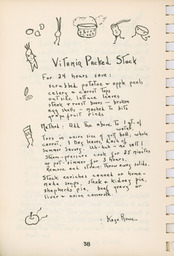 Vitamin Packed Stock
For 24 hours save:
scrubbed potatoe & apple peels
celery & carrot tops
outside lettuce leaves
steak & roast bones - broken
egg shells - washed to bits
grapefruit rinds
Method: Add the above to 1 qt of
water.
Toss in onion size of golf ball, whole
carrot, 1 bay leaf, dash of
Summer Savory.
Steam-pressure cook for 25 minutes
or pot-simmer for 3 hours.
Remove and strain: throw away solids.
Stock enriches canned or home-
made soups, steak & kidney pie,
shepherds pie, beef gravy or
liver & onion casserole.
- Kaye
38